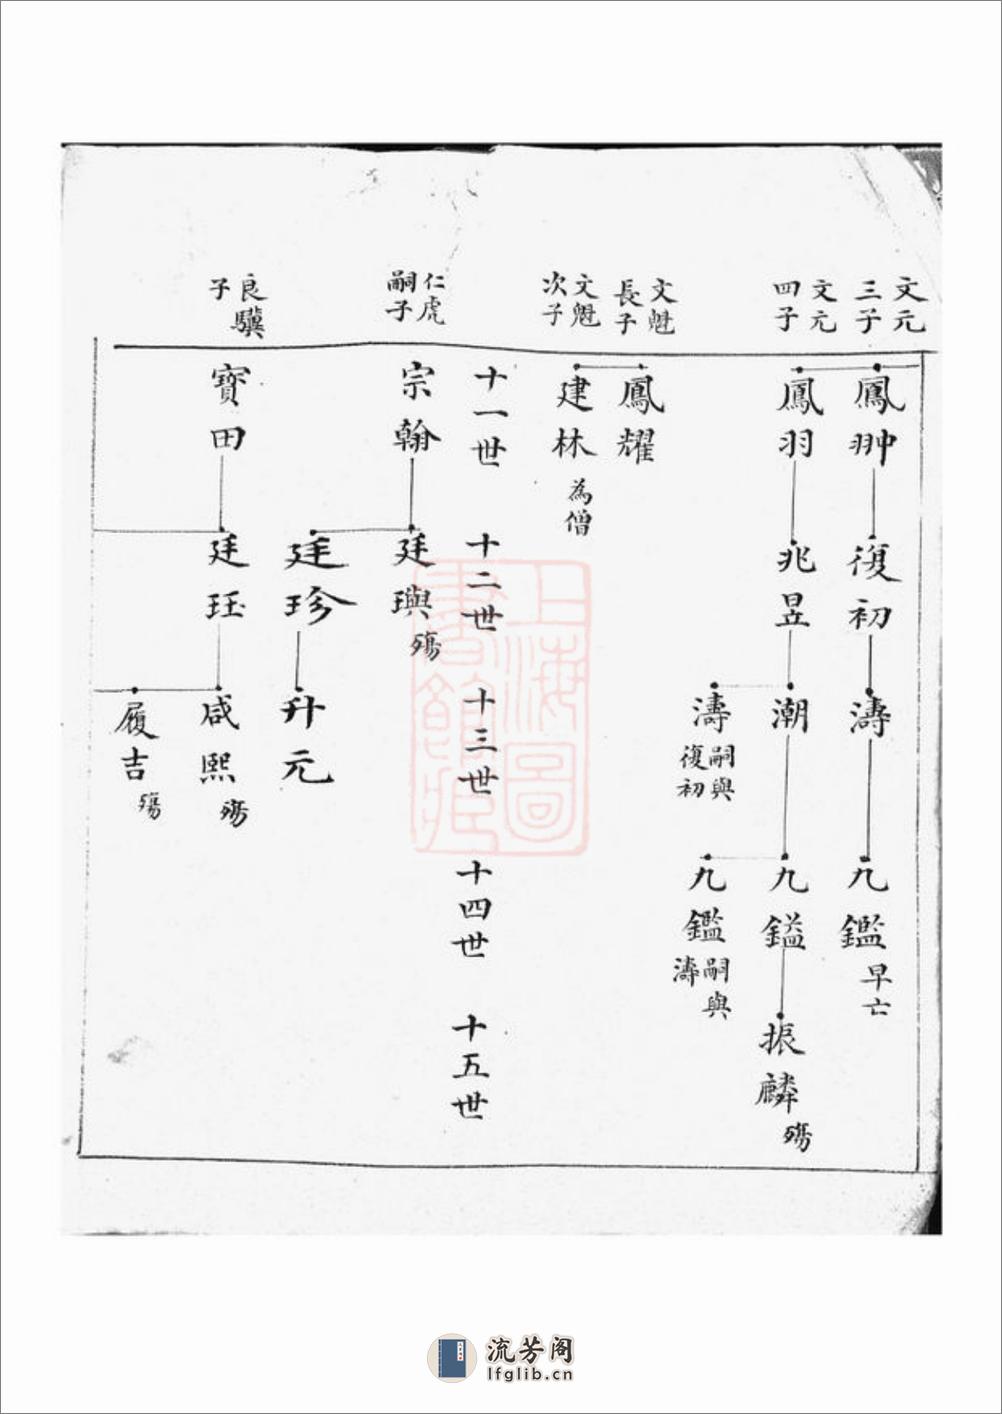 文元
三子
鳳翀
復初
濤
九鑑
早亡
文元
四子
鳳羽
兆昱
潮
九鎰
振麟
殤
濤
嗣與
復初
九鑑
嗣與
濤
文魁
長子
鳳耀
文魁
次子
建林
為僧
十一世
十二世
十三世
十四世
十五世
仁虎
嗣子
宗翰
廷璵
殤
廷珍
升元
良驥
子
寶田
廷珏
咸熙
殤
履吉
殤
上海圖
書館藏
流芳阁
lfglib.cn